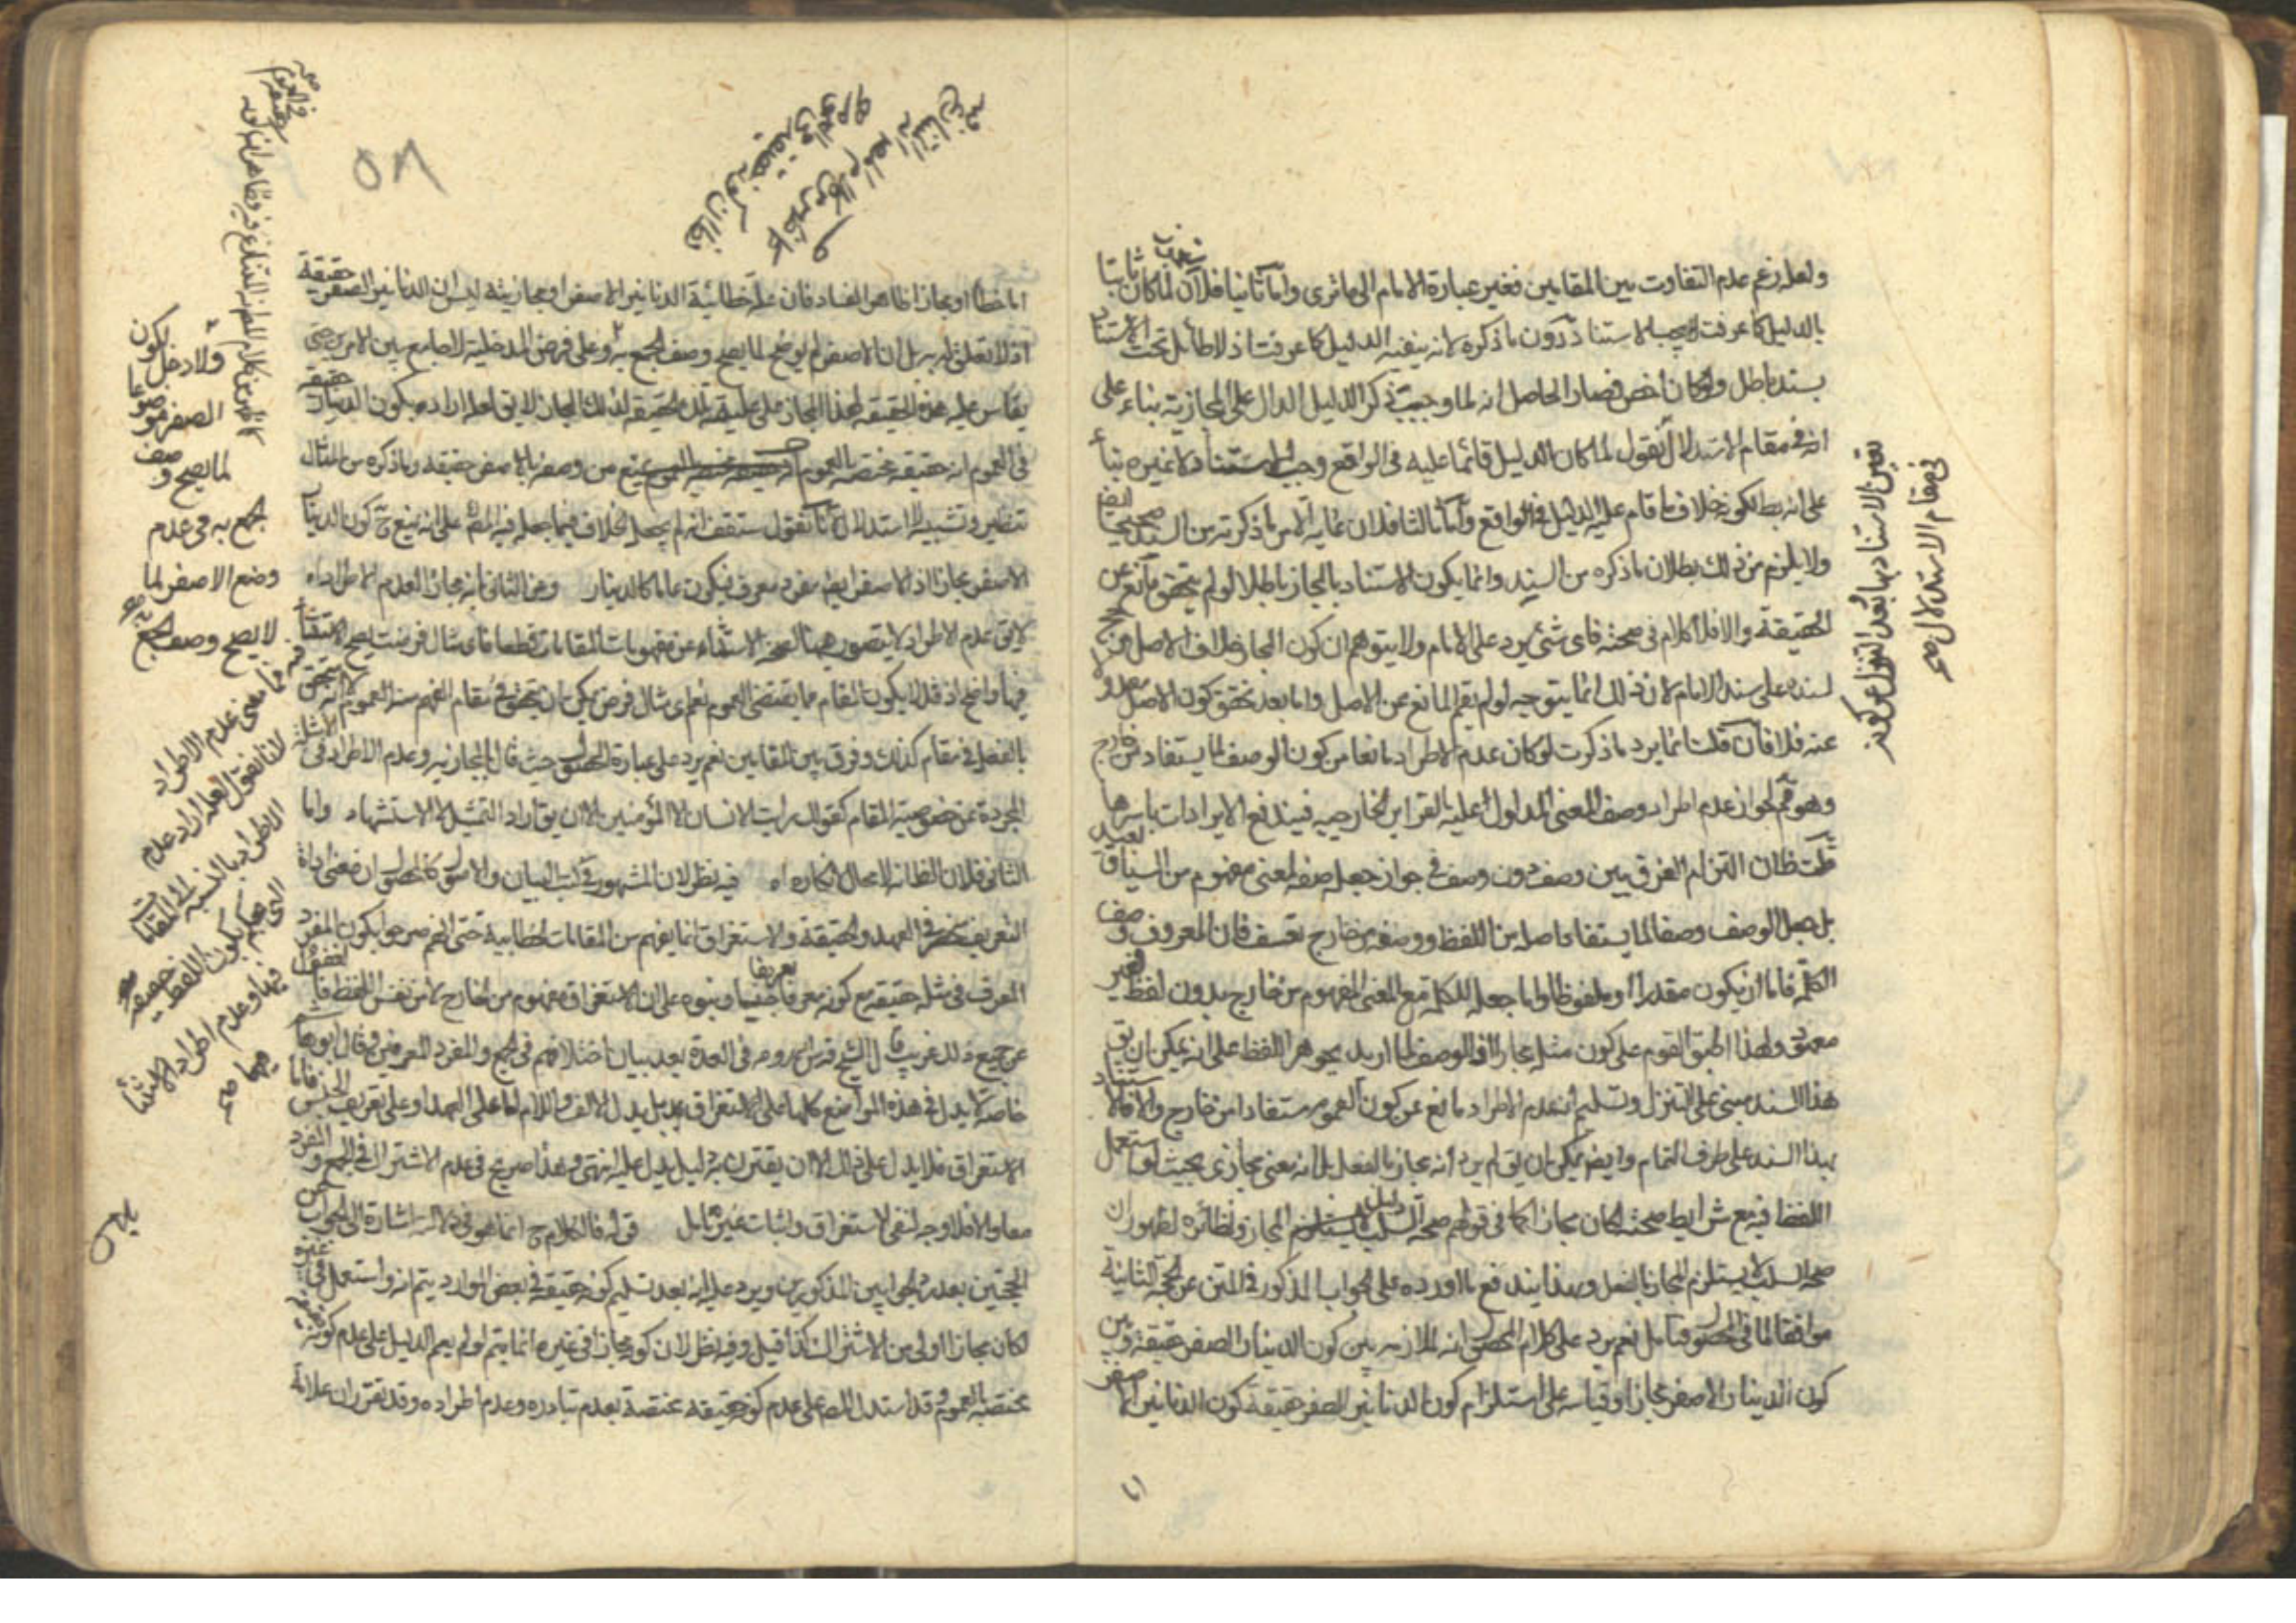 ولعله زعم عدم التفاوت بين المقامين فغير عبارة الامام الى ما ترى واما ثانيا فلان لما كان ثابتا
بالدليل كما عرفت الاستناد دون ما ذكره لانه ينفيه الدليل كما عرفت اذ لا طائل تحت الاستناد
بسند باطل وان كان اخص فصار الحاصل انه لما وجبت ذكر الدليل الدال على المجازية بناء على
انه في مقام الاستدلال نقول لما كان الدليل قائما عليه في الواقع وجب الاستناد لا غيره بناء
على انه بط لكونه خلاف ما قام عليه الدليل في الواقع واما ثالثا فلان غاية الامر ما ذكرته من السند صحيحا
ولا يلزم من ذلك بطلان ما ذكره من السند وانما يكون الاستناد بالمجاز باطلا لو لم يتحقق مانع عن
الحقيقة والا فلا كلام في صحته فاى شئ يرد على الامام ولا يتوهم ان كون المجاز خلاف الاصل
لسنده على سند الامام لان ذلك انما يتوجه لو لم يقم المانع عن الاصل واما بعد تحقق كون الاصل
عنه فلا فان قلت انما يرد ما ذكرت لو كان عدم الاطراد مانعا من كون الوصف لما يستفاد من خارج
وهو ثم لجواز عدم اطراد وصف المعنى المدلول عليه بالقراين الخارجيه فيندفع الايرادات باسرها
قلت ظان التزام الفرق بين وصف دون وصف في جواز جعله صفه لمعنى مفهوم من السياق
بل جعل الوصف وصفا لما يستفاد اصله من اللفظ ووصفه من خارج تعسف فان المعروف وصف
الكلمة فاما ان يكون مقدرا او ملفوظا واما جعله للكلمة مع المعنى المفهوم من خارج بدون لفظ فغير
معهود ولهذا اطبق القوم على كون مثله مجازا فالوصف لما اريد بجوهر اللفظ على انه يمكن ان يق
هذا السند مبنى على التنزل وتسليم ان عدم الاطراد مانع عن كون العموم مستفادا من خارج والا فالاستناد
بهذا السند على طرف التمام وايضا يمكن ان يق لم يرد انه مجاز بالفعل بل انه معنى مجازى بحيث لو استعمل
اللفظ فيه مع شرايط صحته لكان مجازا كما في قولهم صحة السلب دليل المجاز ونظائره لظهور ان
صحة السلب لا يستلزم المجاز بالفعل وهذا يندفع ما اورده على الجواب المذكور في المتن عن الحجة الثانية
موافقا لما في فتامل نعم يرد على كلام انه لا ملازمه بين كون الدينار الصفر حقيقة وبين
كون الدينار الاصفر مجازا وقياسه على استلزام كون الدنانير الصفر حقيقة كون الدنانير الاصفر
تعين الاستناد بها بعد التنزل عن كونه
في مقام الاستدلال صح
٥٨
اما خطأ او مجازا ظاهر الفساد فان علة خطائية الدنانير الاصفر او مجازيته ليس ان الدنانير الصفر حقيقة
اذ لا تعلق له به بل ان الاصفر لم يوضع لما يصح وصف الجمع به وعلى فرض المدخلية الجامع بين الامرين حتى
يقاس عليه هذه الحقيقة لهذا المجاز على تلك الحقيقة لذلك المجاز لا يق لعله اراد بكون الدينار حقيقة
في العموم انه حقيقة مختصه بالعموم يمنع من وصفه بالاصفر حقيقة وما ذكره من المثال
تنظير وتشبيه لا استدلال لانا نقول ستقف انه لم يجعل الخلاف فيما جعله فيه المص على انه يمنع ح كون الدينار
الاصفر مجازا اذ الاصفر ايضا مفرد معرف فيكون عاما كالدينار وعن الثاني بانه مجاز لعدم الاطراد اه
لا يق عدم الاطراد لا يتصور ههنا لصحة الاستثناء عن مفهومات المقامات قطعا فاى مثال فرضت يصح الاستثناء
فيها واضح اذ قد لا يكون المقام مما يقتضى العموم نعم اى مثال فرض يمكن ان يتحقق في مقام الفهم منه العموم الا انه لا يتحقق
بالفعل في مقام كذلك وفرق بين المقامين نعم يرد على عبارة المحقق حيث قال المجازيه وعدم الاطراد في الامثلة
المجردة عن خصوصية المقام كقولك رايت الانسان الا المؤمنين الا ان يق اراد التمثيل لا الاستشهاد واما
الثاني فلان الظ انه لا مجال لانكاره اه فيه نظر لان المشهور في كتب البيان والاصول ان معنى اداة
التعريف منحصر في العهد والحقيقة والاستغراق انما يفهم من المقامات الخطابية حتى انهم صرحوا بكون المفرد
المعرف في مثله حقيقة مع كونه معرفا تعريفا جنسيا وبنوه على ان الاستغراق مفهوم من الخارج لا من نفس اللفظ
عن جميع ذلك غريب قال الشيخ قدس روحه في العدة بعد بيان اختلافهم في الجمع والمفرد المعرفين وقال ابو هاشم
خاصة لا يدل في هذه المواضع كلها على الاستغراق بل يدل الالف واللام اما على العهد او على تعريف الجنس فاما
الاستغراق فلا يدل على ذلك الا ان يقترن به دليل يدل عليه انتهى وهذا صريح في عدم الاشتراك في الجمع والمفرد
معا والا فلا وجه لنفى الاستغراق واثبات غيره تامل قوله فالكلام ح انما هو في دلالته اشارة الى الجواب عن
الحجتين بعد رد الجوابين المذكورين ويرد عليه انه بعد تسليم كونه حقيقة في بعض الموارد يتم انه لو استعمل في غيره
لكان مجازا اولى من الاشتراك كذا قيل وفيه نظر لان كونه مجازا في غيره انما يتم لو لم يقم الدليل على عدم كونه حقيقة
مختصة بالعموم وقد استدل المص على عدم كونه حقيقة مختصة بعدم تبادره وعدم اطراده وقد تقرر ان علامة
ولا دخل لكون
الصفر موضوعا
لما يصح وصف
جمع به في عدم
وضع الاصفر لما
لا يصح وصف الجمع به صح
لانا نقول لعله اراد عدم
الاطراد بالنسبة الى المقامات